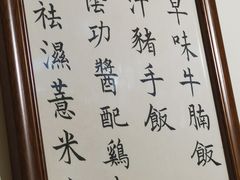 味牛腩飯
汁豬手飯
功醬配雞
祛濕薏米